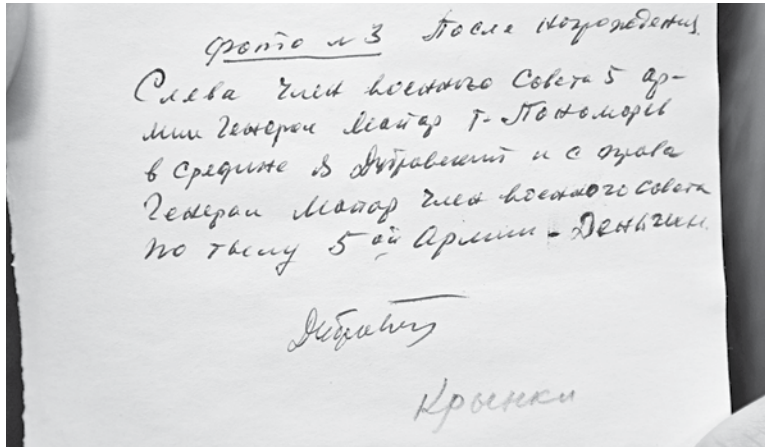 Фото № 3 После награждения.
Слева член военного Совета 5 ар-
мии Генерал Маиор т. Пономорев
в средине Я Дубравский и с права
Генерал Маиор член военного совета
по тылу 5 ой Армии - Деньгин.
Крынки